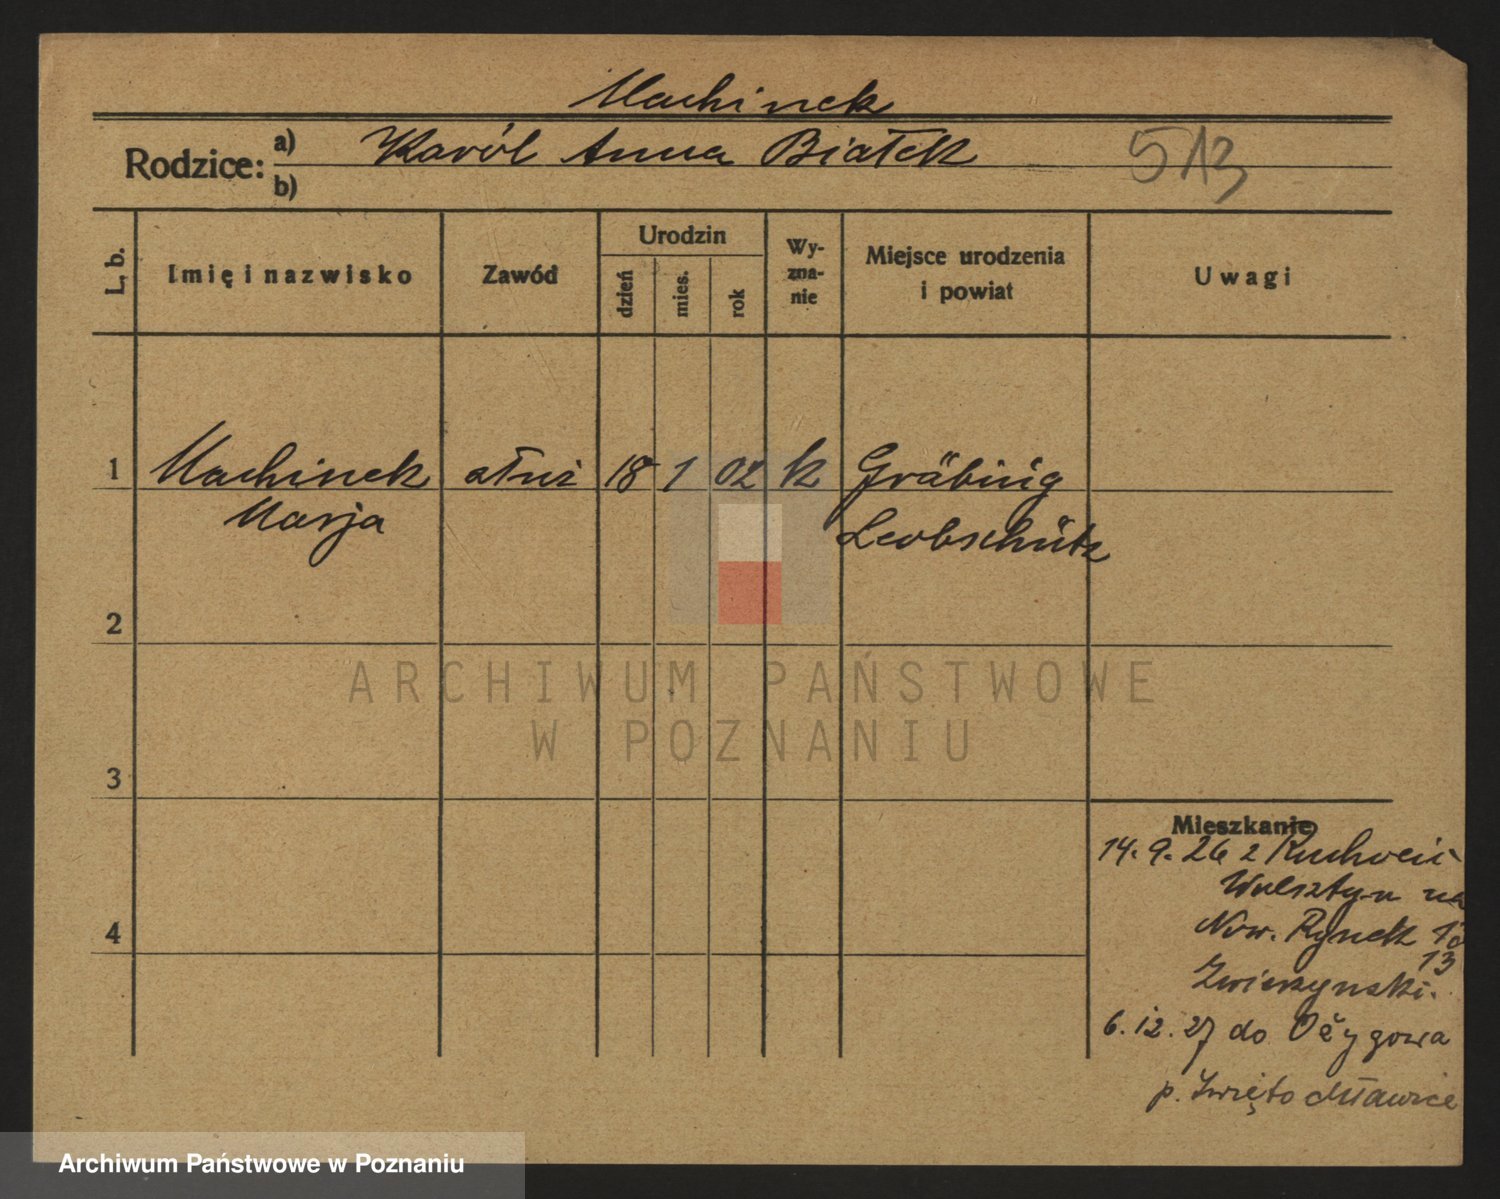 Machinek
Rodzice: a) Karól Anna Białek
b)
513
L. b.
Imię i nazwisko
Zawód
Urodzin
dzień
mies.
rok
Wy-
zna-
nie
Miejsce urodzenia
i powiat
Uwagi
1 Machinek służ 18 1 02 k Gräbnig
Marja Leobschütz
2
3
4
Mieszkanie
14. 9. 26 z
Wolsztyn na
Now. Rynek 10
13
Zwierzynski.
6. 12. 27 do
p.
ARCHIWUM PAŃSTWOWE
W POZNANIU
Archiwum Państwowe w Poznaniu